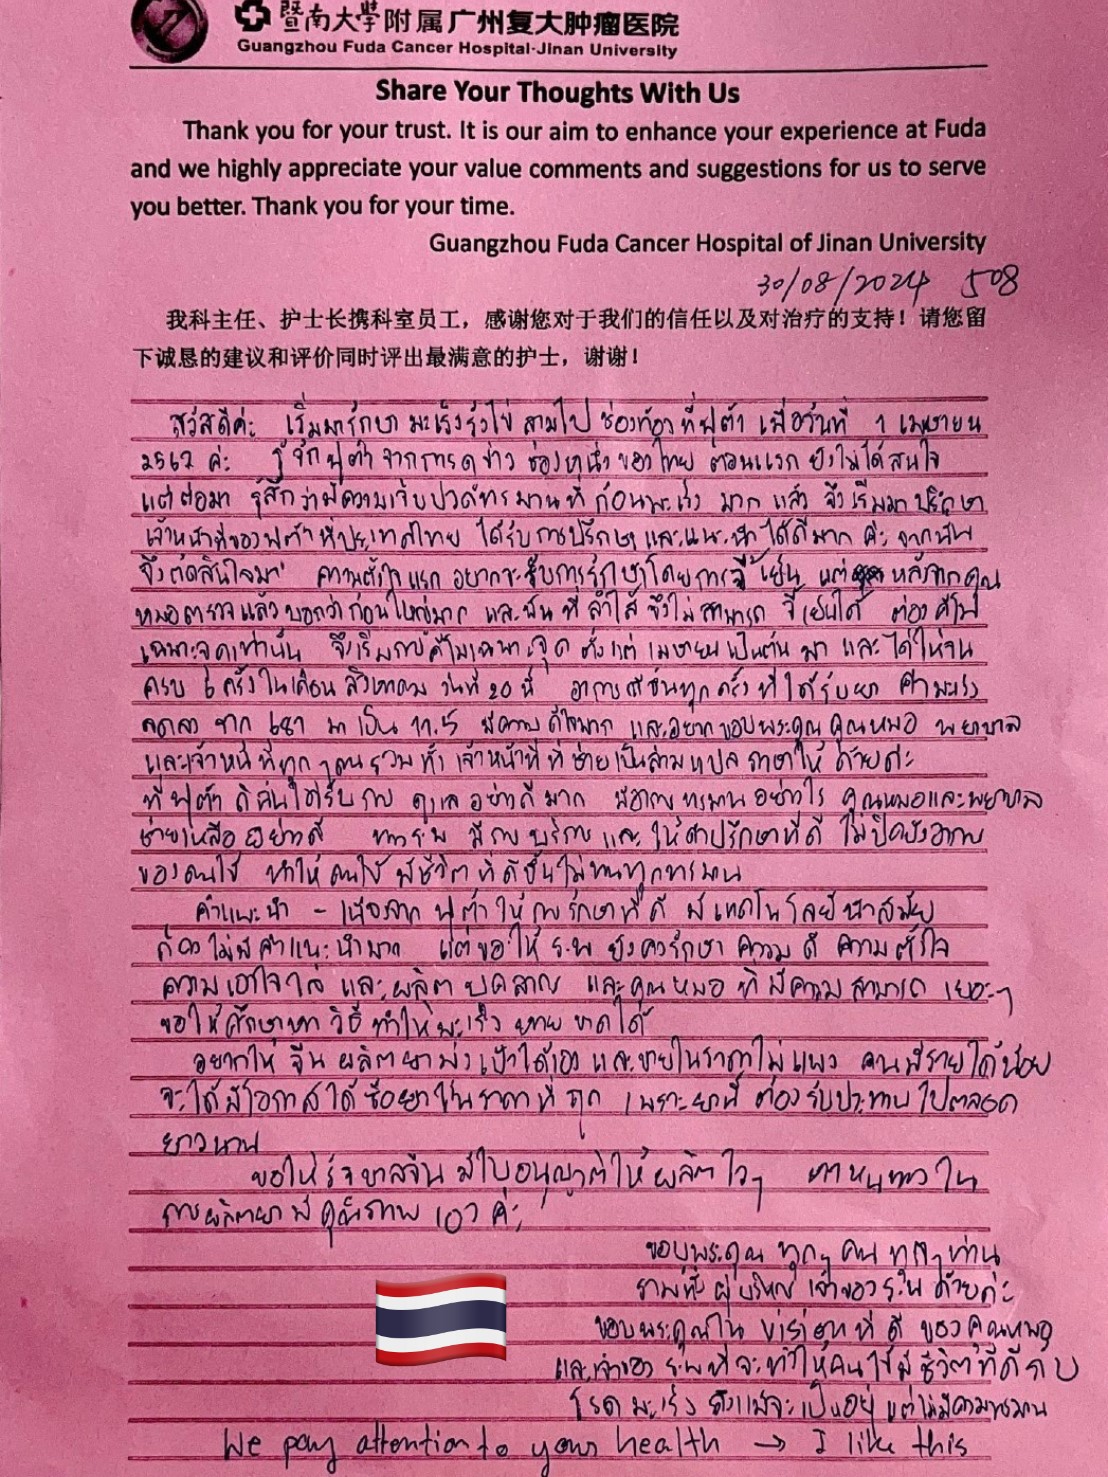 暨南大學附属广州复大肿瘤医院
Guangzhou Fuda Cancer Hospital-Jinan University
Share Your Thoughts With Us
Thank you for your trust. It is our aim to enhance your experience at Fuda
and we highly appreciate your value comments and suggestions for us to serve
you better. Thank you for your time.
Guangzhou Fuda Cancer Hospital of Jinan University
30/08/2024 508
我科主任、护士长携科室员工，感谢您对于我们的信任以及对治疗的支持！请您留
下诚恳的建议和评价同时评出最满意的护士，谢谢！
สวัสดีค่ะ เริ่มมารักษา มะเร็งรังไข่ ลามไป ช่องท้อง ที่ฟูต้า เมื่อวันที่ 1 เมษายน
2567 ค่ะ รู้จักฟูต้า จากการดูข่าว ช่องหนึ่งของไทย ตอนแรก ยังไม่ได้สนใจ
แต่ต่อมา รู้สึกว่ามีความเจ็บปวดทรมานที่ก้อนมะเร็ง มาก แล้ว จึงเริ่มมาปรึกษา
เจ้าหน้าที่ของฟูต้า ที่ประเทศไทย ได้รับการปรึกษา และแนะนำ ได้ดีมาก ค่ะ จากนั้น
จึงตัดสินใจมา ความตั้งใจแรก อยากจะรับการรักษาโดยการจี้เย็น แต่ หลังจากคุณ
หมอตรวจแล้วบอกว่าก้อนใหญ่มาก และ ที่ลำไส้ จึงไม่สามารถ จี้เย็นได้ ต้อง คีโม
เฉพาะจุดเท่านั้น จึงเริ่มการคีโมเฉพาะจุด ตั้งแต่ เมษายน เป็นต้น มา และ ได้ให้จน
ครบ 6 ครั้งในเดือน สิงหาคม วันที่ 20 นี้ อาการดีขึ้นทุกครั้ง ที่ได้รับยา ค่ามะเร็ง
ลดลง จาก 681 มาเป็น 11.5 มีความดีใจมาก และอยากขอบพระคุณ คุณหมอ พยาบาล
และเจ้าหน้าที่ทุกๆคน รวมทั้ง เจ้าหน้าที่ที่ช่วยเป็นล่ามแปล ภาษาให้ ด้วยค่ะ
ที่ฟูต้า ดิฉันได้รับการ ดูแล อย่างดี มาก มีอาการทรมานอย่างไร คุณหมอและพยาบาล
ช่วยเหลืออย่างดี ทางรพ มีการบริการ และ ให้คำปรึกษาที่ดี ไม่ปิดบังอาการ
ของคนไข้ ทำให้ คนไข้ มีชีวิต ที่ดีขึ้นไม่ทนทุกทรมาน
คำแนะนำ - เนื่องจาก ฟูต้า ให้การรักษาที่ดี มีเทคโนโลยีทันสมัย
ก็คงไม่มีคำแนะนำมาก แต่ขอให้ ร.พ ยังคงรักษา ความดี ความตั้งใจ
ความเอาใจใส่ และผลิต บุคลากร และคุณหมอ ที่มีความสามารถ เยอะๆ
ขอให้ศึกษาหา วิธี ทำให้มะเร็ง หายขาดได้
อยากให้ จีน ผลิตยามุ่งเป้าได้เอง และขายในราคาไม่แพง คนมีรายได้น้อย
จะได้มีโอกาสได้ซื้อยาในราคาที่ถูก เพราะยานี้ ต้องรับประทานไปตลอด
ยาวนาน
ขอให้รัฐบาลจีน มีใบอนุญาติให้ผลิตไวๆ ใน
การผลิตยามีคุณภาพ เอง ค่ะ
ขอบพระคุณ ทุกๆ คน ทุกๆท่าน
รวมทั้ง ผู้บริหาร เจ้าของ ร.พ ด้วยค่ะ
ขอบพระคุณใน ที่ดี ของคุณหมอ
และเจ้าของ รพที่จะทำให้คนไข้มีชีวิตที่ดีกับ
โรค มะเร็ง ถึงแม้จะเป็นอยู่ แต่ไม่มีความทรมาน
We pay attention to your health → I like this